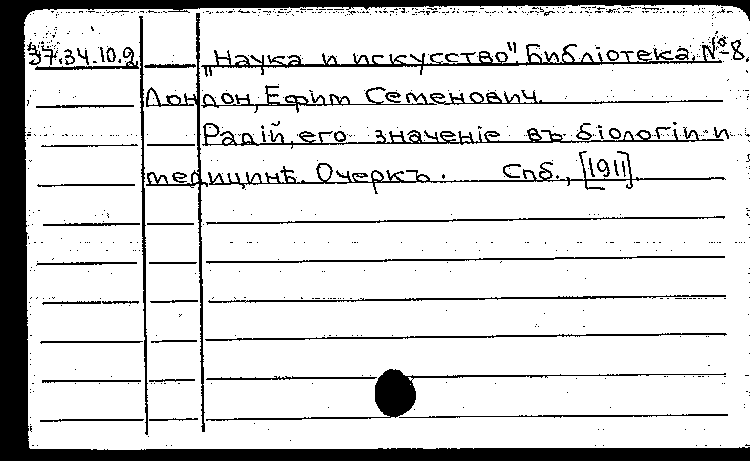 37.34.10.9. „Наука и искусство" Библіотека. №8.
Лондон, Ефим Семенович.
Радій, его значеніе въ біологіи и
медицинѣ. Очеркъ. Спб., [1911].